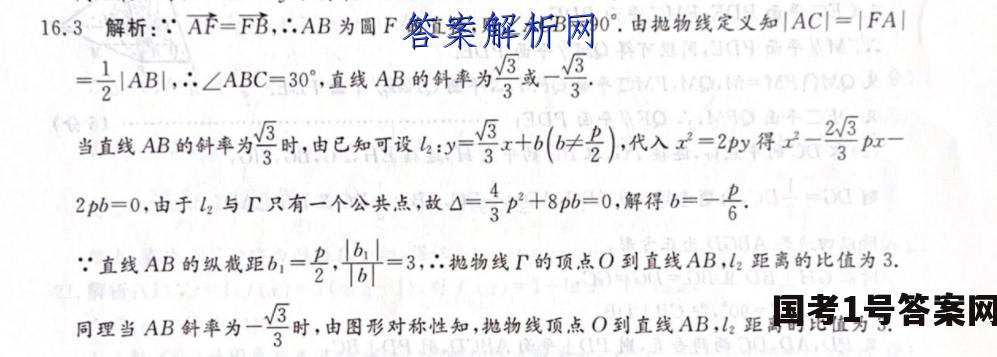 16.3 解析:∵ $\overrightarrow{AF}=\overrightarrow{FB}$,∴AB 为圆 F 直 B 90°.由抛物线定义知|AC|=|FA|
答案解析网
=$\frac{1}{2}$|AB|,∴∠ABC=30°,直线 AB 的斜率为$\frac{\sqrt{3}}{3}$或-$\frac{\sqrt{3}}{3}$.
当直线 AB 的斜率为$\frac{\sqrt{3}}{3}$时,由已知可设 $l_2$:y=$\frac{\sqrt{3}}{3}$x+b(b≠$\frac{p}{2}$),代入 $x^2$=2py 得 $x^2$-$\frac{2\sqrt{3}}{3}$px-
2pb=0,由于 $l_2$ 与 Γ 只有一个公共点,故 Δ=$\frac{4}{3}p^2$+8pb=0,解得 b=-$\frac{p}{6}$.
∵直线 AB 的纵截距 $b_1$=$\frac{p}{2}$,$\frac{|b_1|}{|b|}$=3,∴抛物线 Γ 的顶点 O 到直线 AB,$l_2$ 距离的比值为 3.
同理当 AB 斜率为-$\frac{\sqrt{3}}{3}$时,由图形对称性知,抛物线顶点 O 到直线 AB,$l_2$ 距离的比值为 3.
国考1号答案网